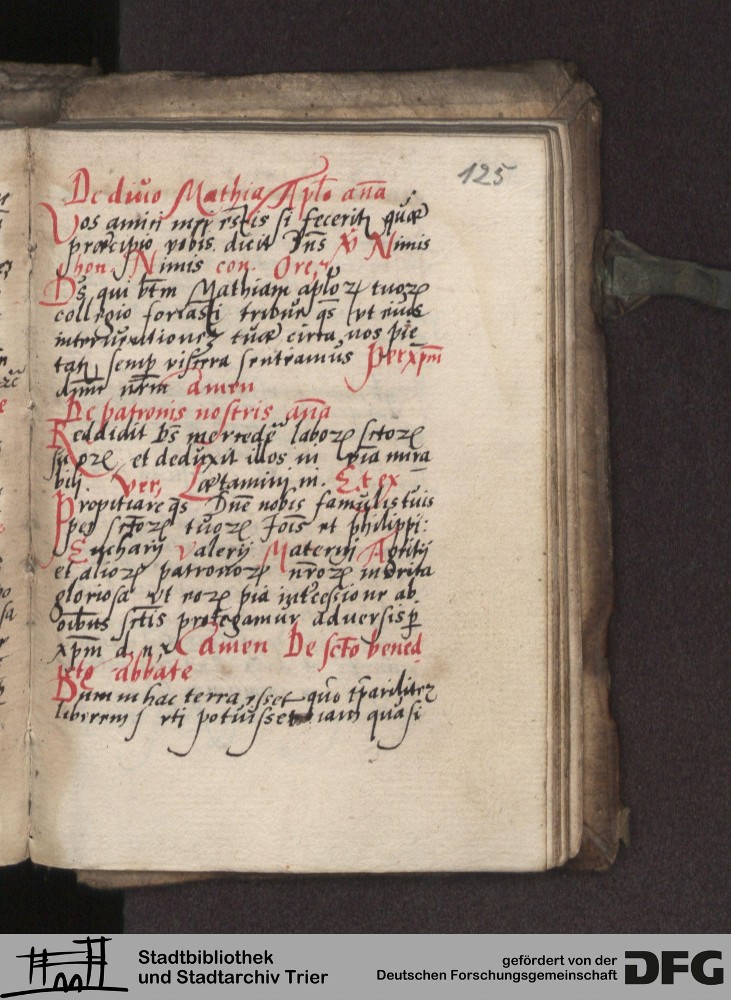 125
De diuo Mathia Aplo aña
Vos amici mei estis si feceritis quæ
præcipio vobis dicit Dñs V̄ Nimis
hon. Nimis con. Orem9
Ds qui btm Mathiam aploꝝ tuoꝝ
collegio tribue qs vt eius
interuentione tuæ circa nos pie
tatis semp viscera sentiamus Per xpm
dnm nrm Amen
De patronis nostris aña
Reddidit Ds mercedē laboꝝ sctoꝝ
suoꝝ et deduxit illos in via mira
bili. Ver, Lætamini in. Et ex
Propitiare qs Dñe nobis famulis tuis
per sctoꝝ tuoꝝ Jois et philippi:
Eucharij Valerij Materni Agritij
et alioꝝ patronoꝝ nroꝝ merita
gloriosa vt eoꝝ pia intcessione ab
oibus sctis protegamur aduersis p
xpm d. n x Amen De scto bened
icto abbate
Dum in hac terra esset quo
liberem potuisset iam quasi
Stadtbibliothek
und Stadtarchiv Trier
gefördert von der
Deutschen Forschungsgemeinschaft
DFG